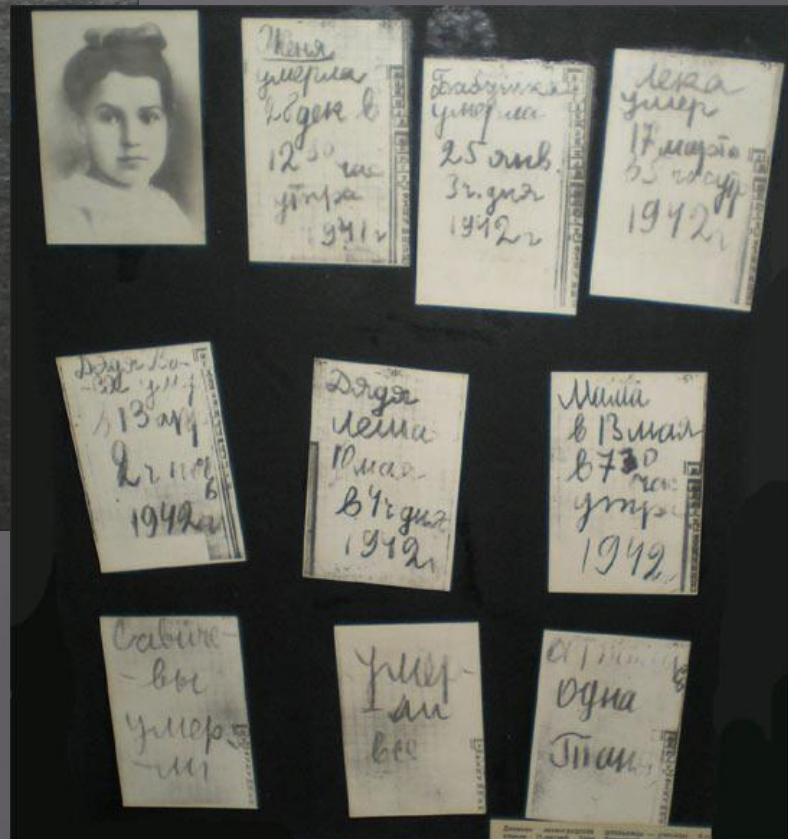 Женя
умерла
28 дек в
12 30 час
утра
1941 г
Бабушка
умерла
25 янв
3 ч. дня
1942 г
Лека
умер
17 марта
в 5 час утр
1942 г
Дядя Ва-
-ся ум
в 13 апр
2 ч ноч
1942 г
Дядя
Леша
10 мая
в 4 ч дня
1942 г
Мама
в 13 мая
в 7 30
час
утра
1942
Савиче-
-вы
умер
-ли
умер-
-ли
все
одна
Таня